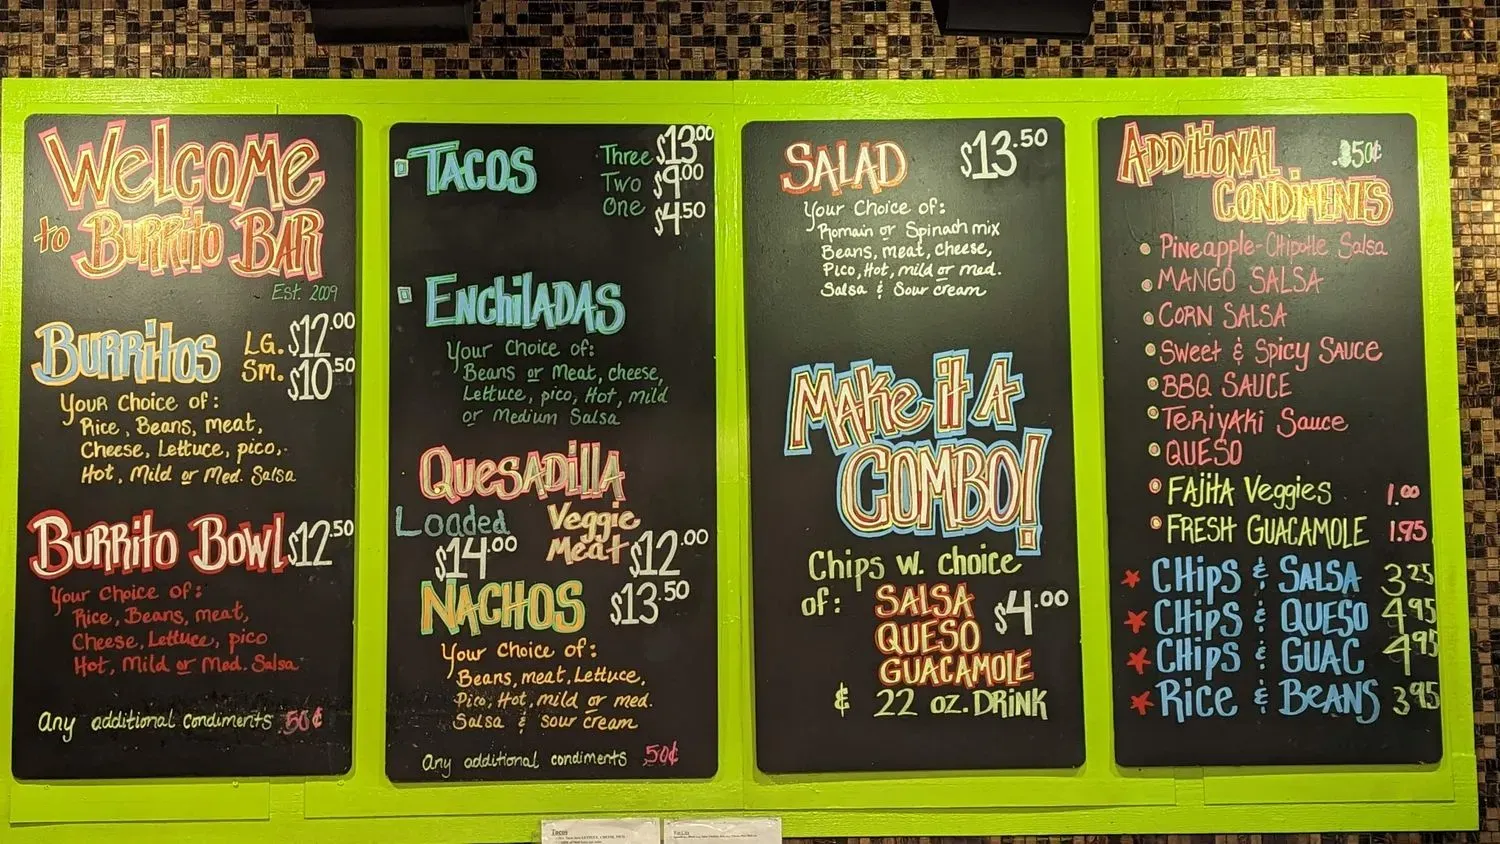 WELCOME
to BURRITO BAR
Est. 2009
BURRITOS LG. $12.00
Sm. $10.50
YOUR Choice of:
Rice, Beans, meat,
Cheese, Lettuce, pico,
Hot, Mild or Med. Salsa
BURRITO BOWL $12.50
Your Choice of:
Rice, Beans, meat,
Cheese, Lettuce, pico
Hot, Mild or Med. Salsa
Any additional condiments .50¢
TACOS Three $13.00
Two $9.00
One $4.50
ENCHILADAS
Your Choice of:
Beans or Meat, cheese,
Lettuce, pico, Hot, mild
or Medium Salsa
QUESADILLA
Loaded $14.00
Veggie
Meat $12.00
NACHOS $13.50
Your Choice of:
Beans, meat, Lettuce,
Pico, Hot, mild or med.
Salsa & sour cream
Any additional condiments .50¢
SALAD $13.50
Your Choice of:
Romain or Spinach mix
Beans, meat, cheese,
Pico, Hot, mild or med.
Salsa & Sour cream
MAKE it A
COMBO!
Chips w. choice
of: SALSA $4.00
QUESO
GUACAMOLE
& 22 oz. DRINK
ADDITIONAL .50¢
CONDIMENTS
Pineapple-Chipotle Salsa
MANGO SALSA
CORN SALSA
Sweet & Spicy SAUCE
BBQ SAUCE
TERIYAKI Sauce
QUESO
FAJITA Veggies 1.00
FRESH GUACAMOLE 1.95
CHIPS & SALSA 3.25
CHIPS & QUESO 4.95
CHIPS & GUAC 4.95
RICE & BEANS 3.95
Tacos